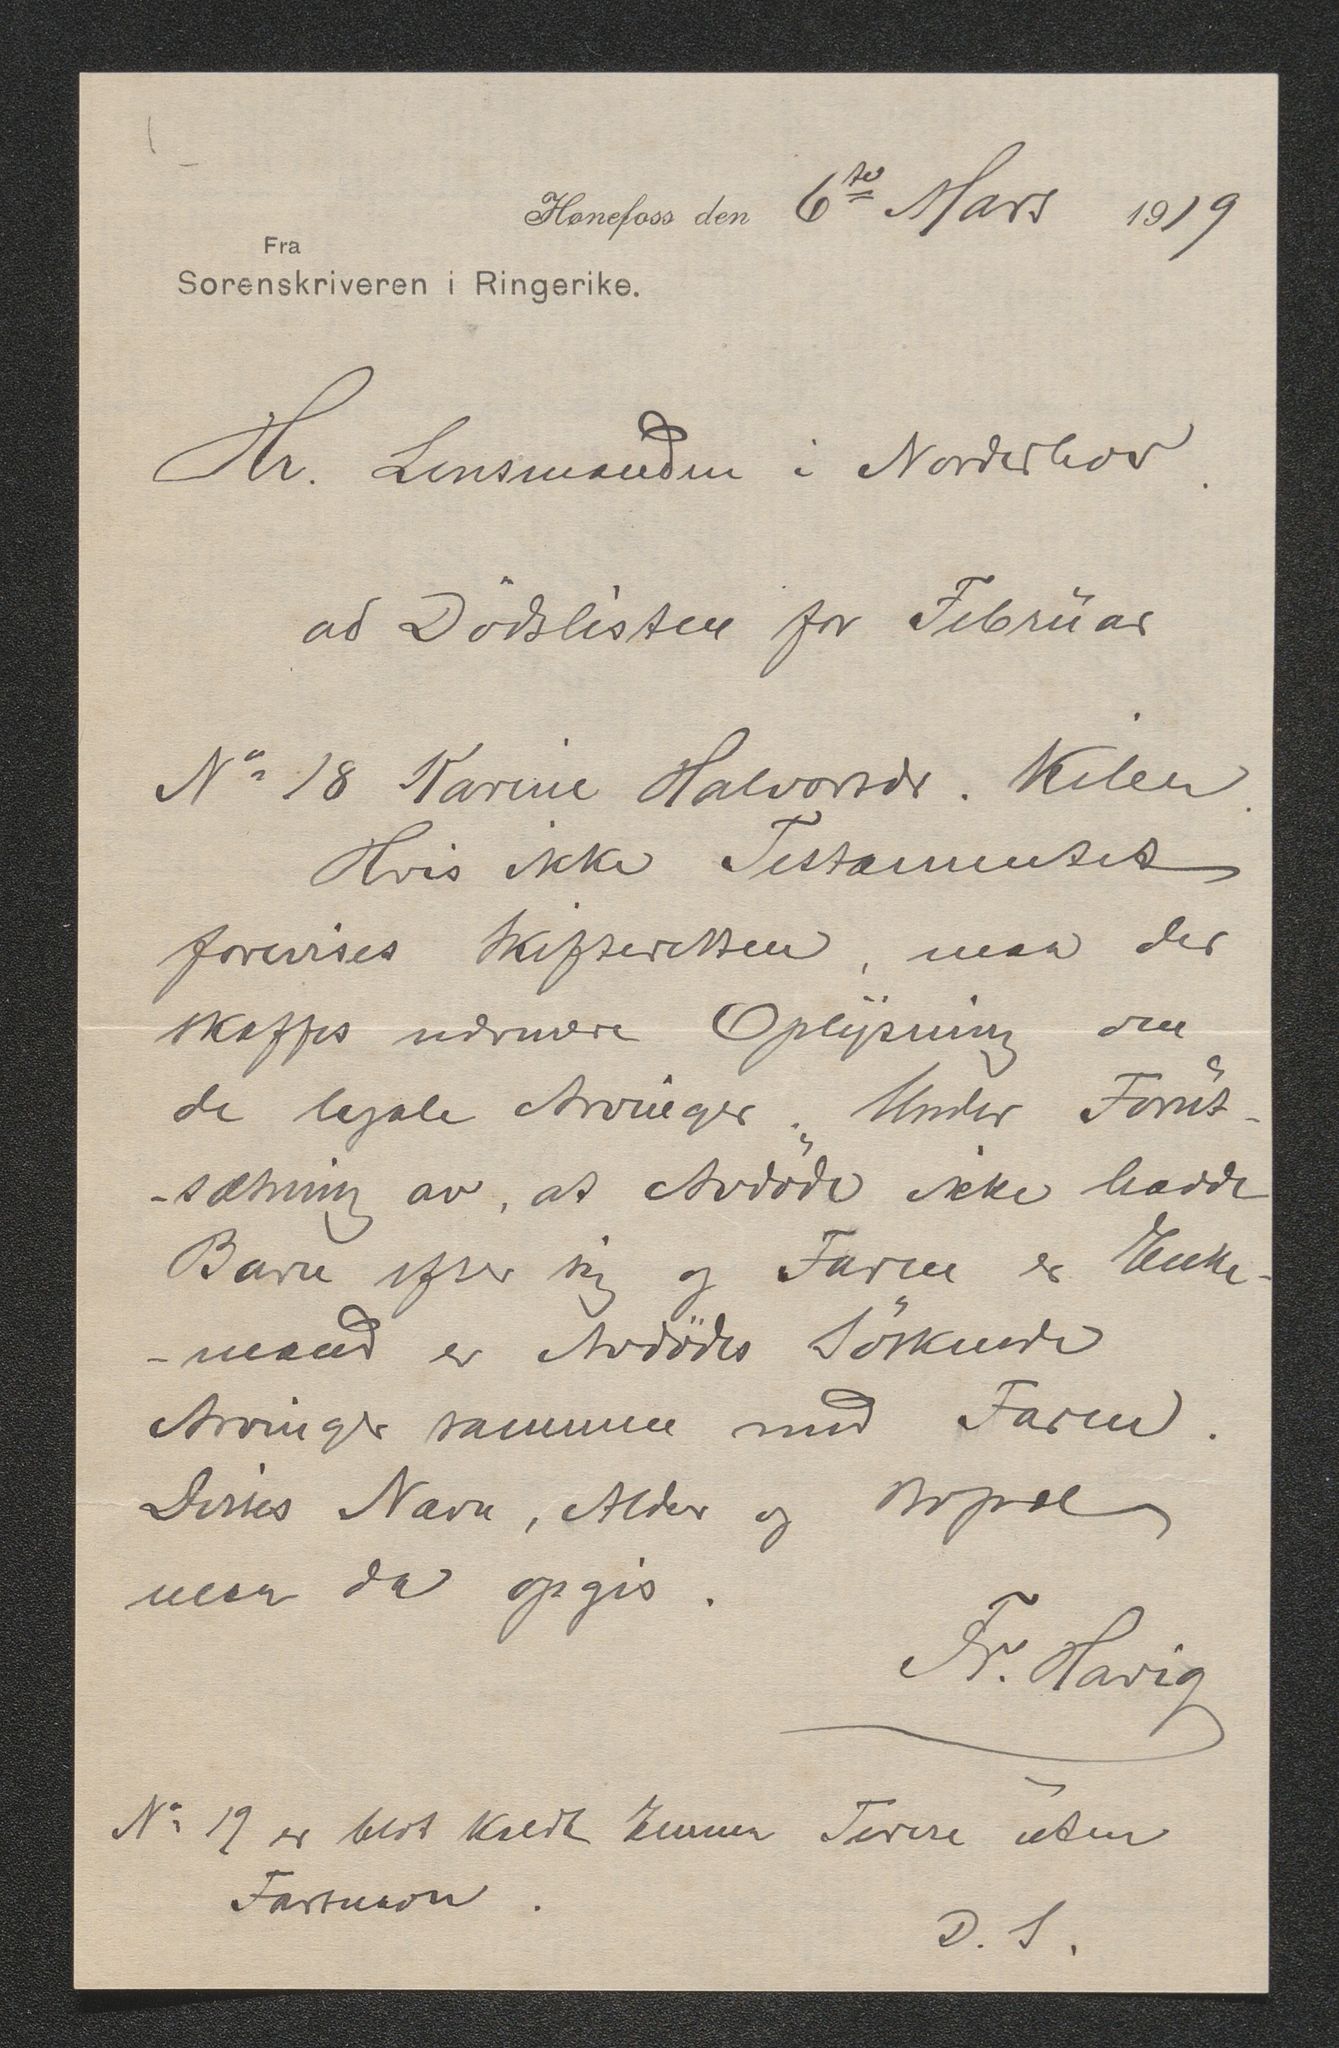 Hønefoss den 6te Mars 1919
Fra
Sorenskriveren i Ringerike.
Hr. Lensmanden i Norderhov.
ad Dödslisten for Februar
No 18 Karine Halvorsdr. Kilen.
Hvis ikke Testamentet
forevises Skifteretten, maa der
skaffes nærmere Oplysning om
de legale Arvinger. Under Forut-
-sætning av, at Avdöde ikke havde
Barn efter sig og Faren er Enke-
-mand er Avdödes Söskende
Arvinger sammen med Faren.
Disses Navn, Alder og Bopæl
maa da opgis.
Fr. Harig
No 19 er blot kaldt Emma Terese uten
Farsnavn.
D. S.